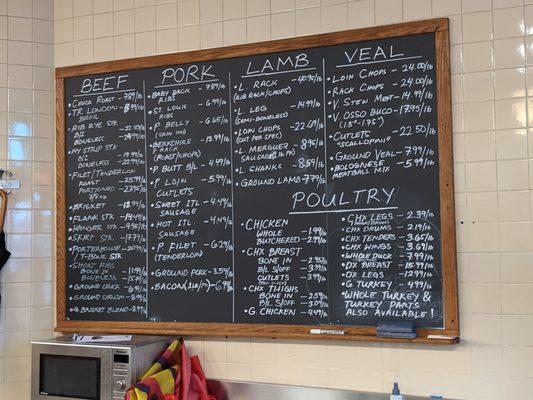 BEEF
• CHUCK ROAST - 7.89/lb
• TR LONDON - 8.99/lb
BROIL
• RIB EYE STK
B/I
BONELESS
• NY STRIP STK
B/I - 19.99/lb
BONELESS - 22.99/lb
• FILET/TENDERLOIN
ROAST - 25.99/lb
PORTIONED
• BRISKET
• FLANK STK - 14.49/lb
• HANGER STK - 9.95/lb
• SKIRT STK - 17.79/lb
• PORTERHOUSE
/T-BONE STK
• SHORT RIBS
BONE IN
BONELESS
• GROUND CHCK
• GROUND SIRLOIN - 8.99/lb
• G. BASKET BLEND - 8.99/lb
PORK
• BABY BACK - 7.89/lb
RIBS
• ST LOUIS - 6.99/lb
RIBS
• P BELLY - 6.65/lb
(SKIN ON)
• BERKSHIRE - 13.99/lb
P RACK
(ROAST/CHOPS)
• P BUTT B/I - 4.49/lb
• P. LOIN - 5.99/lb
CUTLETS
• SWEET ITL - 4.49/lb
SAUSAGE
• HOT ITL - 4.49/lb
SAUSAGE
• P. FILET - 6.29/lb
(TENDERLOIN)
• GROUND PORK - 3.59/lb
• BACON
LAMB
• L RACK - 40.95/lb
(RIB RACK/CHOPS)
• L LEG - 14.99/lb
(SEMI-BONELESS)
• LOIN CHOPS - 22.69/lb
(CUT PER SPEC)
• L. MERGUEZ - 8.95/lb
SAUSAGE
• L SHANKS - 8.59/lb
• GROUND LAMB - 7.79/lb
VEAL
• LOIN CHOPS - 24.00/lb
• RACK CHOPS - 24.00/lb
• V. STEW MEAT - 14.99/lb
• V. OSSO BUCO - 17.95/lb
• CUTLETS - 22.50/lb
"SCALLOPINI"
• GROUND VEAL - 7.99/lb
• BOLOGNESE - 5.99/lb
MEATBALL MIX
POULTRY
• CHICKEN
WHOLE - 1.99/lb
BUTCHERED - 2.99/lb
• CHX BREAST
BONE IN - 2.95/lb
B/L S/OFF - 3.99/lb
CUTLETS - 3.99/lb
• CHX THIGHS
BONE IN - 2.59/lb
B/L S/OFF - 3.09/lb
• G. CHICKEN - 4.49/lb
• CHX LEGS - 2.39/lb
• CHX DRUMS - 2.19/lb
• CHX TENDERS - 3.65/lb
• CHX WINGS - 3.67/lb
• WHOLE DUCK - 7.99/lb
• DX BREAST - 15.99/lb
• DX LEGS - 12.99/lb
• G TURKEY - 4.99/lb
• WHOLE TURKEY &
TURKEY PARTS
ALSO AVAILABLE!